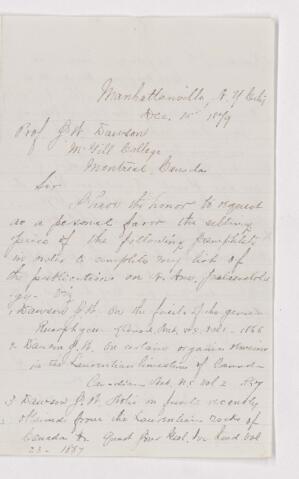 Manhattanville, N. Y. City
Dec. 15th 1879
Prof J. W. Dawson
McGill College
Montreal Canada
Sir
I have the honor to request
as a personal favor the selling
price of the following pamphlets
in order to complete my list of
the publications on N. Am.
Viz
1 Dawson J. W. On the fossils of the genus
Rusophycus Canad. Nat. N.S. Vol 1 - 1864
2 Dawson J. W. On certain organic remains
in the Laurentian limestone of Canada
Canadian Nat. N.S. vol 2
3 Dawson J. W. Notes on fossils recently
obtained from the Laurentian rocks of
Canada &c Quart Jour Geol. Soc Lond Vol
23 - 1867